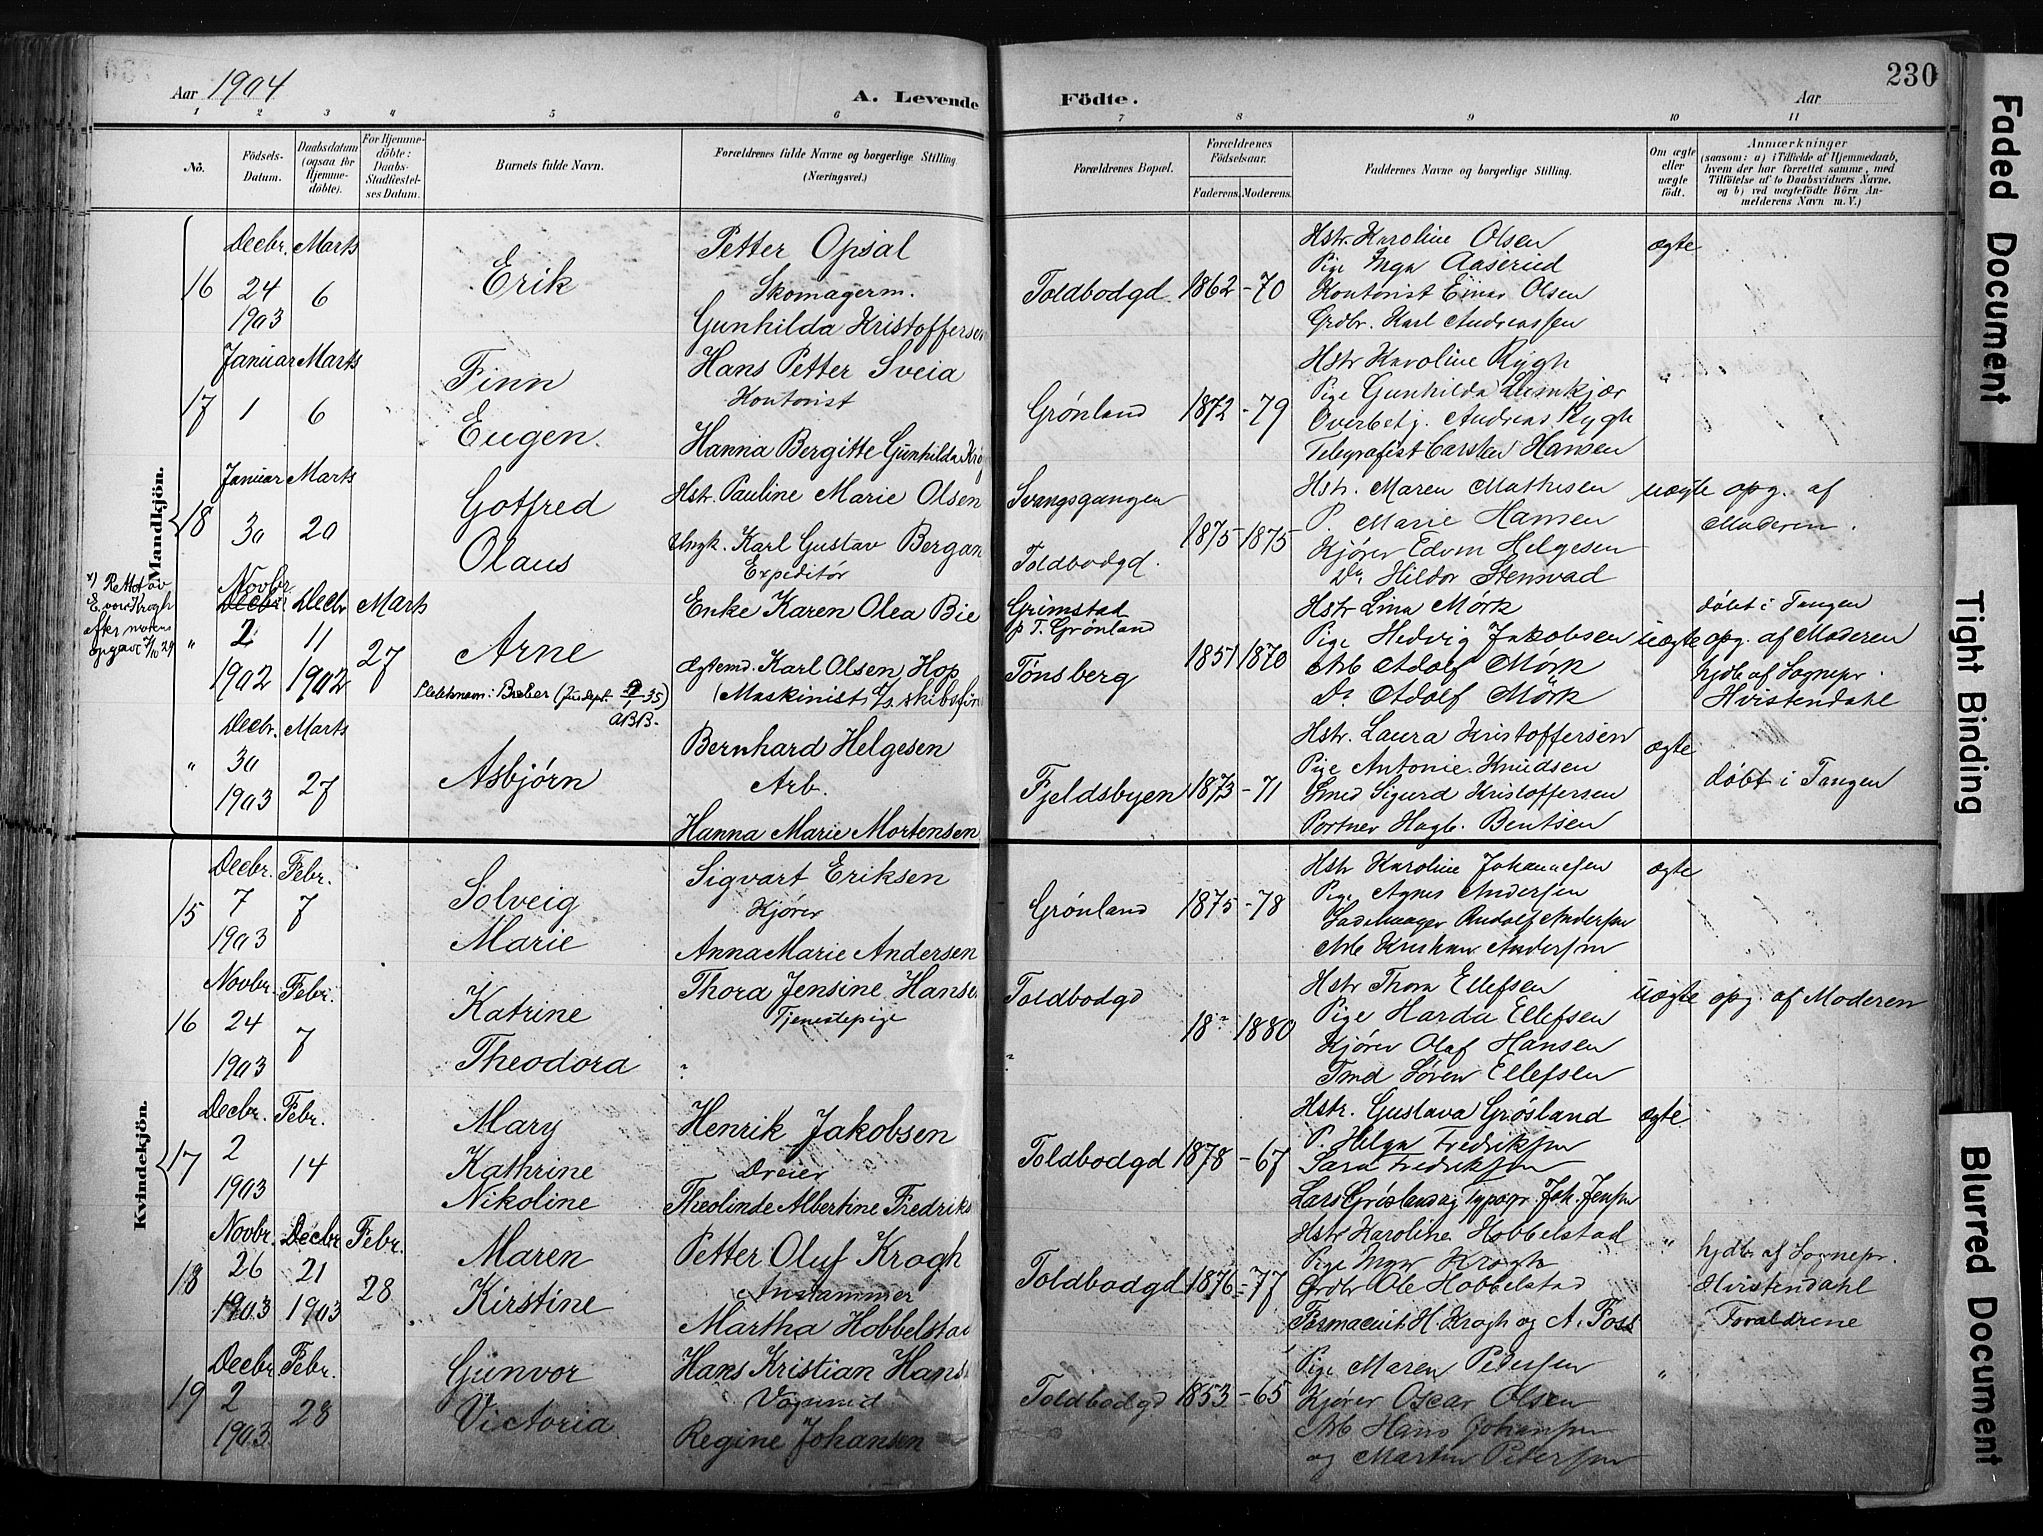 Aar 1904
A. Levende Födte.
Aar
230
1 2 3 4 5 6 7 8 9 10 11
No.
Födsels-Datum.
Daabsdatum (ogsaa for Hjemme-döbte).
For Hjemme-döbte: Daabs-Stadfæstel-ses Datum.
Barnets fulde Navn.
Forældrenes fulde Navne og borgerlige Stilling (Næringsvei.)
Forældrenes Bopæl.
Forældrenes Födselsaar.
Faderens. Moderens.
Faddernes Navne og borgerlige Stilling.
Om ægte eller uægte födt.
Anmærkninger
(saasom: a) i Tilfælde af Hjemmedaab,
hvem der har forrettet samme, med
Tilföielse af to Daabsvidners Navne.
og b) ved uægtefödte Börn An-
melderens Navn m. V.)
Mandkjön.
16
Decbr. 24 1903
Marts 6
Erik
Petter Opsal
Skomagerm.
Gunhilda Kristoffersen
Toldbodgd.
1862 -70
Hstr. Karoline Olsen
Pige Inga Aaserud
Kontorist Einar Olsen
Grdbr. Karl Andreassen
ægte
17
Januar 1
Marts 6
Finn
Eugen.
Hans Petter Sveia
Kontorist
Hanna Bergitte Gunhilda
Grønland
1872 -79
Hstr Karoline Rygh
Pige Gunhilda
Overbetj. Andreas Rygh
Telegrafist Carsten Hansen
"
18
Januar 30
Marts 20
Gotfred
Olaus
Hstr. Pauline Marie Olsen
Ungk. Karl Gustav Bergan
Expeditør
Svangsgangen
Toldbodgd.
1875 - 1875
Hstr. Maren Mathisen
P. Marie Hansen
Kjører Edvin Helgesen
Do Hildor Stensvad
uægte
opg. af
Moderen.
x) Rettet av
E. von Krogh
efter morens
opgave 7/10 29
"
Novbr.
Decbr.
2
1902
Decbr
11
1902
Marts
27
Arne
Slektsnavn: Breier (Jusdept. 9/9 35)
aBB.
Enke Karen Olea Bie
Ægtemd. Karl Olsen Hop
(Maskinist
Grimstad
p T. Grønland
Tønsberg
1851 1870
Hstr Lina Mørk
Pige Hedvig Jakobsen
Arb Adolf Mørk
Do Adolf Mørk
uægte
døbt i Tangen
opg. af Moderen
hjdb af Sognepr.
Hvistendahl
"
Decbr. 30 1903
Marts 27
Asbjørn
Bernhard Helgesen
Arb.
Hanna Marie Mortensen
Fjeldsbyen
1873 -71
Hstr. Laura Kristoffersen
Pige Antonie Knudsen
Smed Sigurd Kristoffersen
Portner Hagb. Bentsen
ægte
døbt i Tangen
Kvindekjön.
15
Decbr. 7 1903
Febr. 7
Solveig
Marie
Sigvart Eriksen
Kjører
Anna Marie Andersen
Grønland
1875 -78
Hstr Karoline Johannesen
Pige Agnes Andersen
Sadelmager Rudolf Andersen
Arb Kristian Andersen
ægte
16
Novbr. 24 1903
Febr. 7
Katrine
Theodora
Thora Jensine Hansen
Tjenestepige
?
Toldbodgd
?
18? 1880
Hstr Thora Ellefsen
Pige Harda Ellefsen
Kjører Olaf Hansen
Tmd Søren Ellefsen
uægte
opg. af Moderen
17
Decbr. 2 1903
Febr. 14
Mary
Kathrine
Nikoline
Henrik Jakobsen
Dreier
Theolinde Albertine Fredriks
Toldbodgd
1878 -67
Hstr. Gustava Grøsland
P. Helga Fredriksen
Sara Fredriksen
Lars Grøsland og Typogr. Joh. Jensen
ægte
18
Novbr. 26 1903
Decbr 21 1903
Febr. 28
Maren
Kirstine
Petter Oluf Krogh
Martha Hobbelstad
Toldbodgd
1876 -77
Hstr Karoline Hobbelstad
Pige Krogh
Grdbr Ole Hobbelstad
Farmaceut H. Krogh og A. Foss
"
hjdbr af Sognepr.
Hvistendahl
Forældrene
19
Decbr 2 1903
Febr. 28
Gunvor
Victoria
Hans Kristian Hans
Vognmd
Regine Johansen
Toldbodgd
1853 -65
Pige Maren Pedersen
Kjører Oscar Olsen
Arb Hans Johansen
og Martin Petersen
"
Faded Document
Tight Binding
Blurred Document